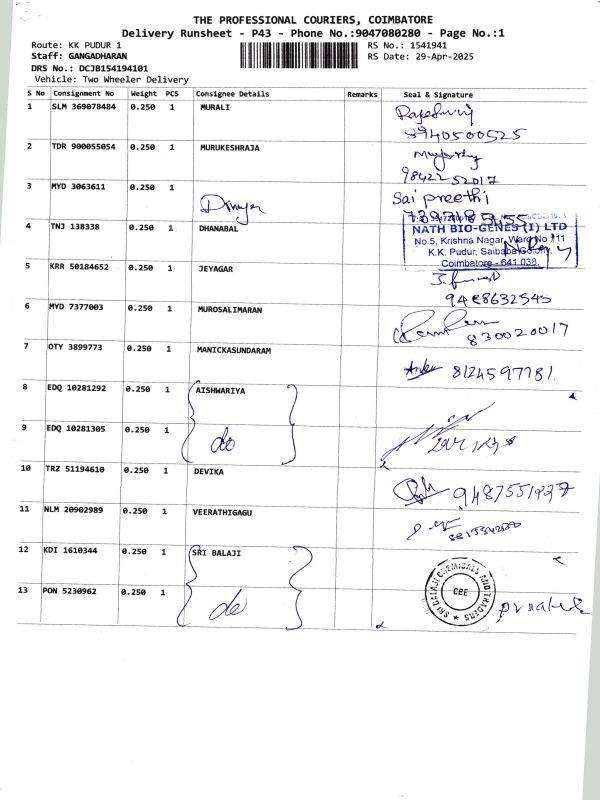 THE PROFESSIONAL COURIERS, COIMBATORE
Delivery Runsheet - P43 - Phone No.:9047080280 - Page No.:1
Route: KK PUDUR 1 RS No.: 1541941
Staff: GANGADHARAN RS Date: 29-Apr-2025
DRS No.: DCJB154194101
Vehicle: Two Wheeler Delivery
S No Consignment No Weight PCS Consignee Details Remarks Seal & Signature
1 SLM 369078484 0.250 1 MURALI
9940500525
2 TDR 900055054 0.250 1 MURUKESHRAJA
98422 52017
3 MYD 3063611 0.250 1 Sai preethi
4 TNJ 138338 0.250 1 DHANABAL
NATH BIO-GENES (I) LTD
No.5, Krishna Nagar, Ward No.11
K.K. Pudur, Saibaba Colony,
Coimbatore - 641 038.
5 KRR 50184652 0.250 1 JEYAGAR
6 MYD 7377003 0.250 1 MUROSALIMARAN
830020017
7 OTY 3899773 0.250 1 MANICKASUNDARAM
8124597781.
8 EDQ 10281292 0.250 1 AISHWARIYA
9 EDQ 10281305 0.250 1 do
10 TRZ 51194610 0.250 1 DEVIKA
11 NLM 20902989 0.250 1 VEERATHIGAGU
12 KDI 1610344 0.250 1 SRI BALAJI
13 PON 5230962 0.250 1 do
SRI BALAJI CHEMICALS AND TRADERS
CBE